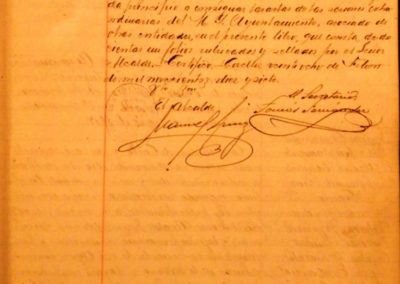 da principio a consignar las actas de las sesiones extra
ordinarias del M. Y. Ayuntamiento, asociado de
otras entidades, en el presente libro, que consta de do
cientos un folios rubricados y sellados por el Señor
Alcalde. Certifico. Cuellar veintiocho de Febrero
de mil novecientos diez y siete.
El Alcalde
El Secretario